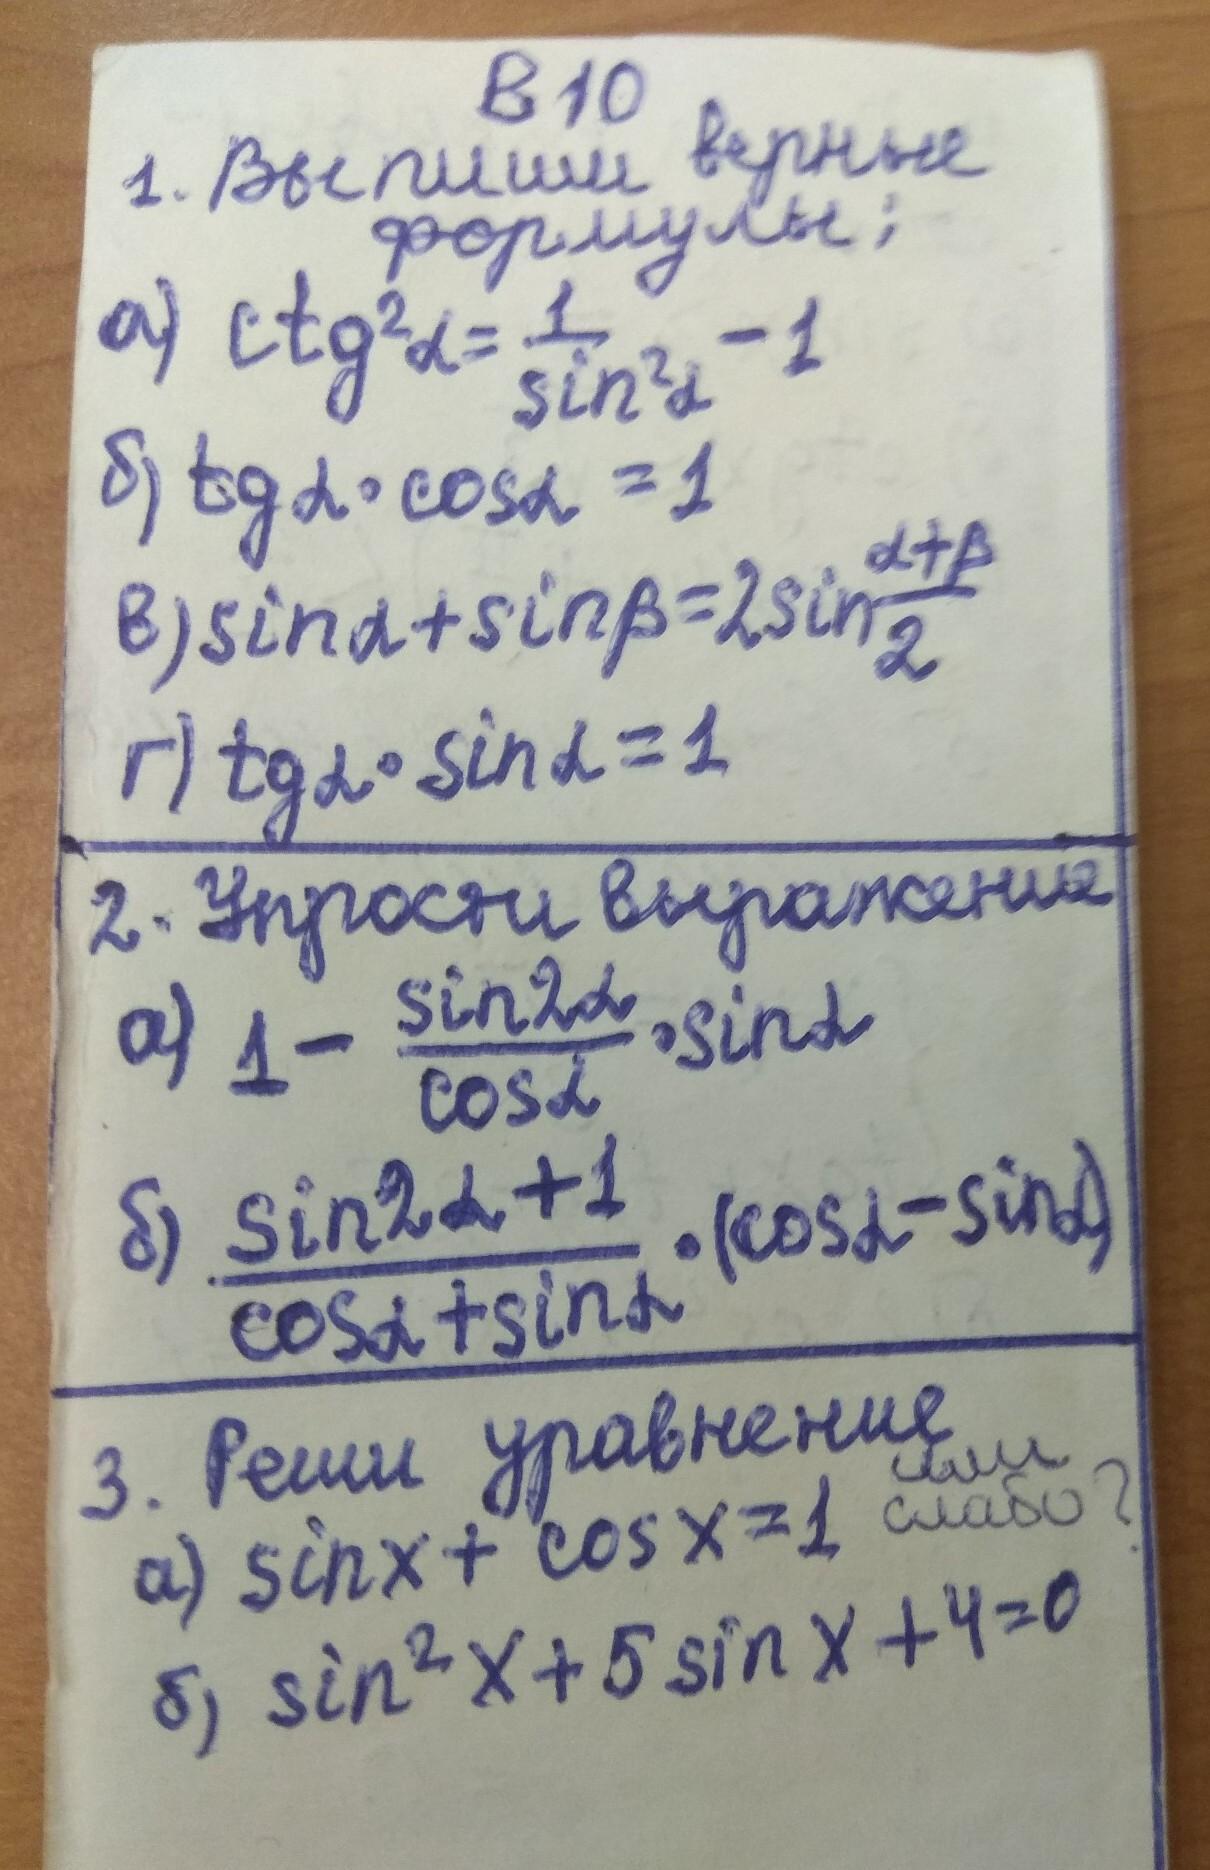 В 10
1. Выпиши верные
формулы:
а) ctg²α = 1/sin²α - 1
б) tgα · cosα = 1
в) sinα + sinβ = 2sin (α+β)/2
г) tgα · sinα = 1
2. Упрости выражение
а) 1 - sin2α/cosα · sinα
б) (sin2α + 1)/(cosα + sinα) · (cosα - sinα)
3. Реши уравнение
или
слабо?
а) sinx + cosx = 1
б) sin²x + 5 sinx + 4 = 0